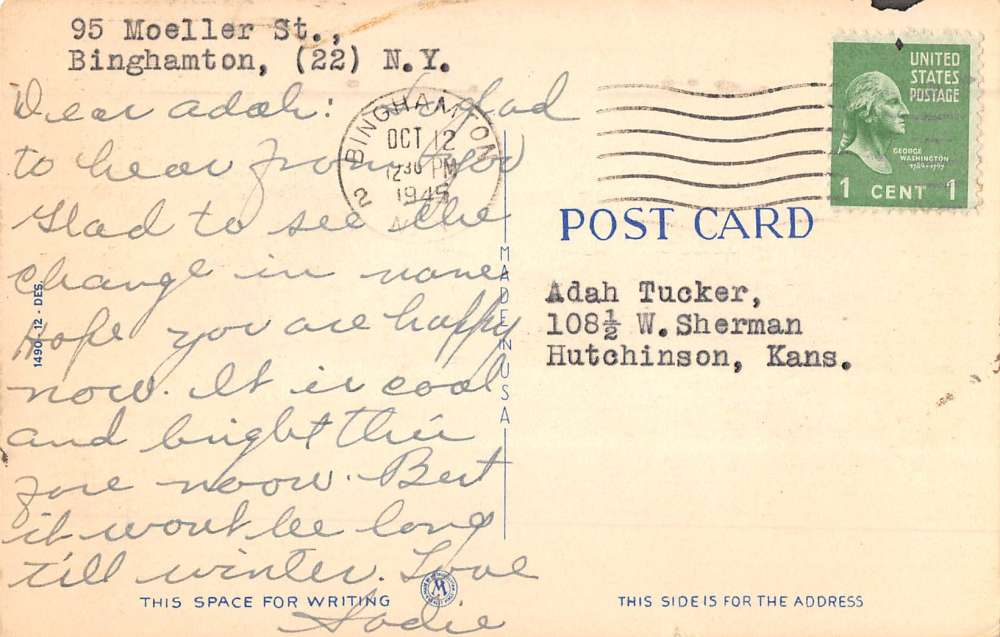 95 Moeller St.,
Binghamton, (22) N.Y.
Dear Adah: Glad
to hear from you
Glad to see the
change in name
Hope you are happy
now. It is cool
and bright this
fore noon. But
it wont be long
till winter. Love
Sadie
THIS SPACE FOR WRITING
1490 12 - DES.
MADE IN USA
BINGHAMTON
OCT 12
12 30 PM
1945
2
UNITED
STATES
POSTAGE
GEORGE
WASHINGTON
1789-1797
1 CENT 1
POST CARD
Adah Tucker,
108½ W. Sherman
Hutchinson, Kans.
THIS SIDE IS FOR THE ADDRESS